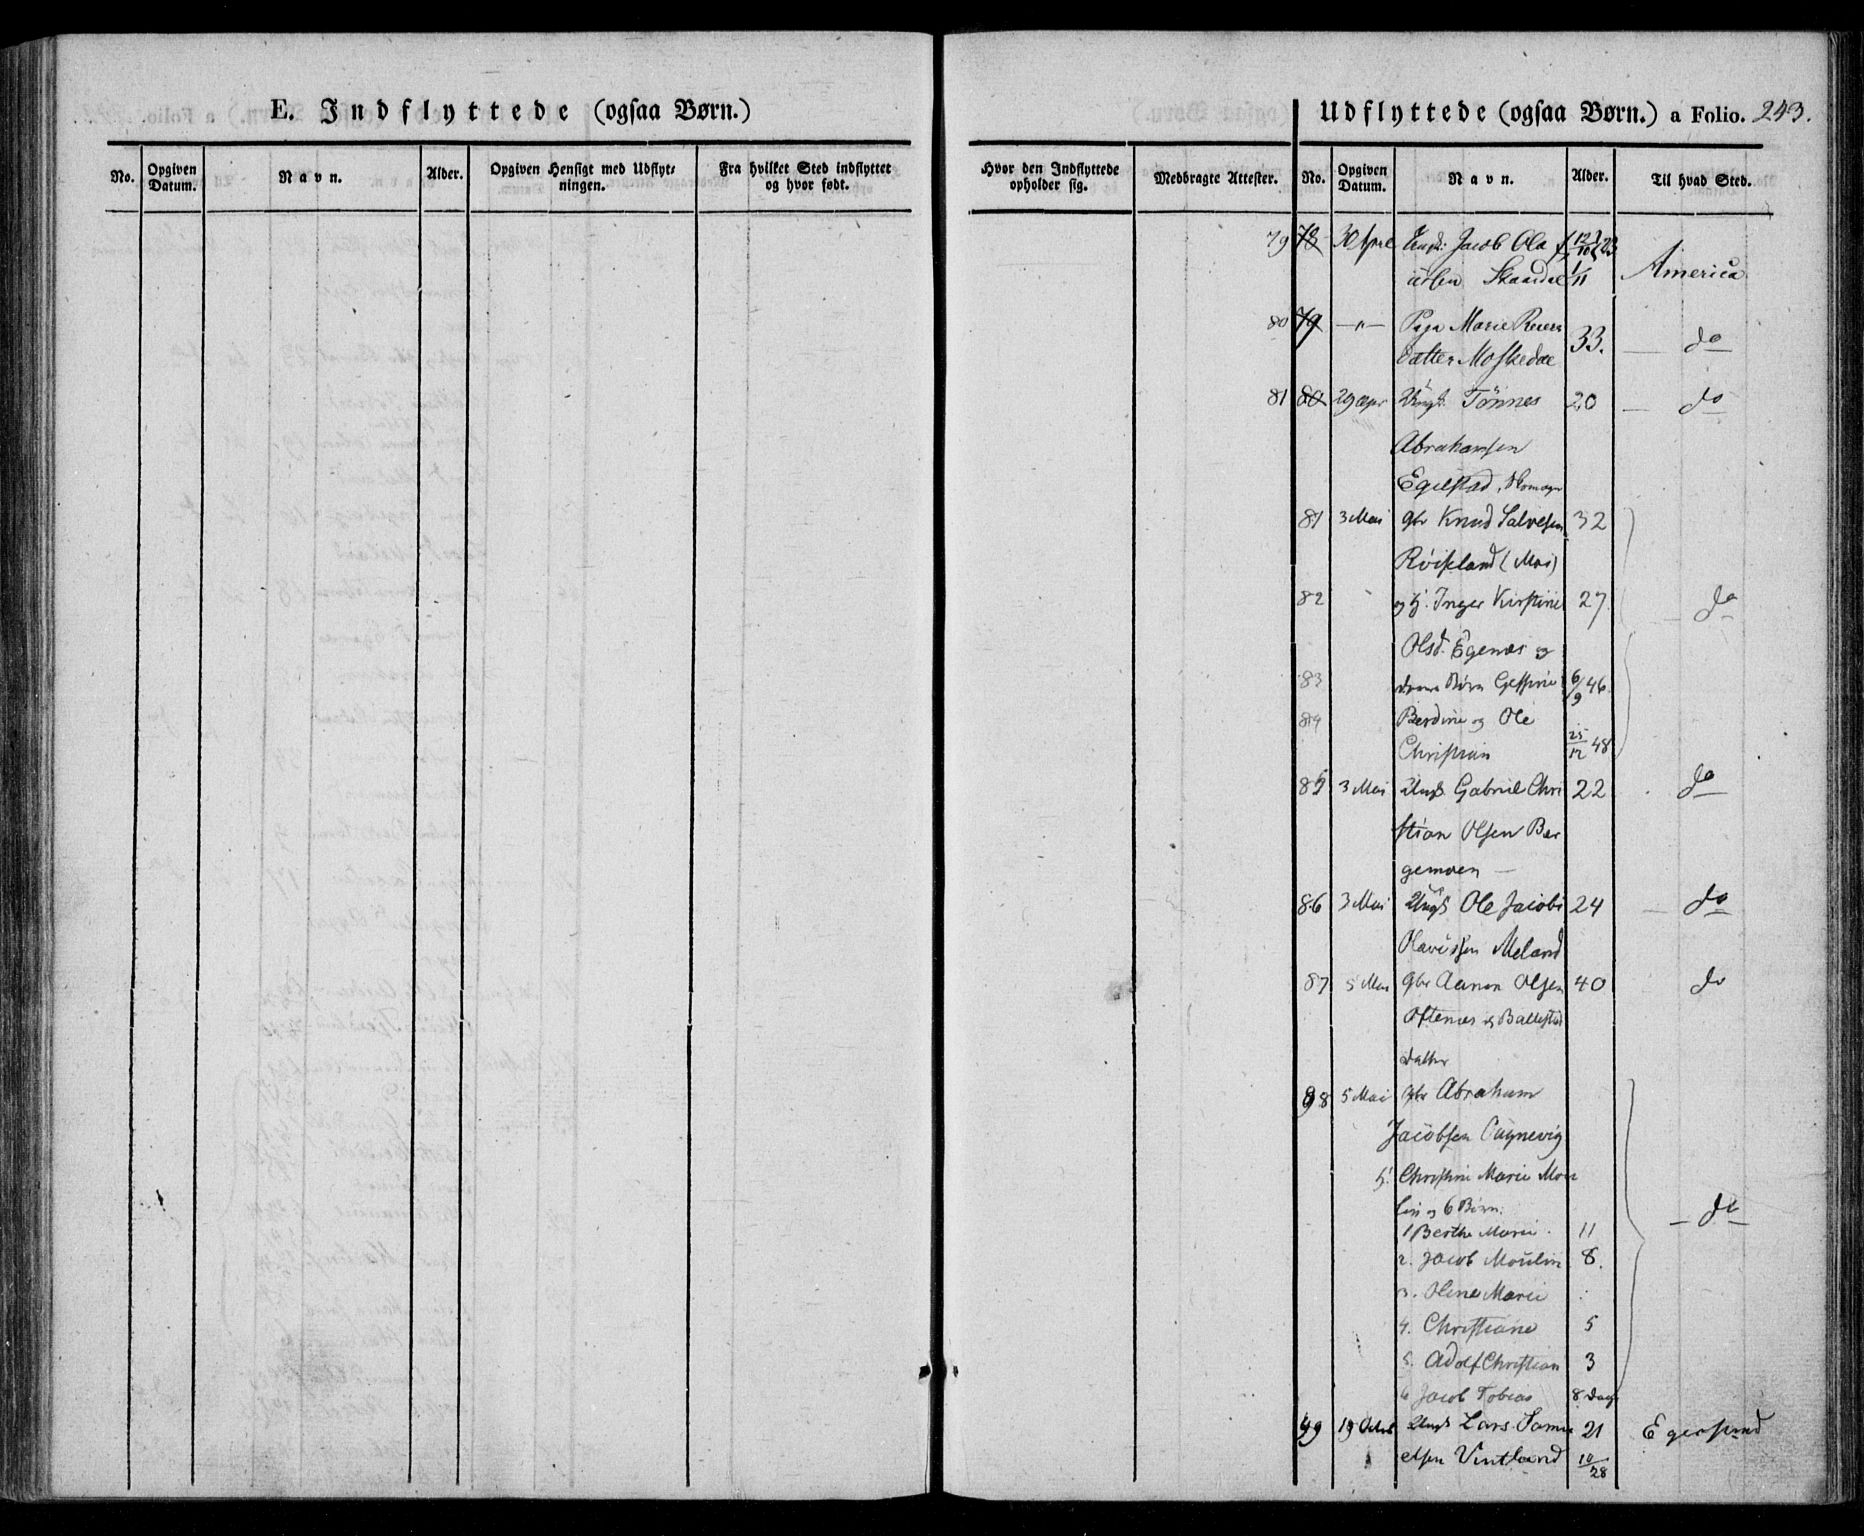 E. Indflyttede (ogsaa Børn.)
No. Opgiven Datum. Navn. Alder. Opgiven Hensigt med Udflytningen. Fra hvilket Sted indflyttet og hvor født.
Hvor den Indflyttede opholder sig. Medbragte Attester.
Udflyttede (ogsaa Børn.) a Folio. 243.
No. Opgiven Datum. Navn. Alder. Til hvad Sted.
79 78 30 Apr Jacob Ola America
80 79 —"— Pige Marie Reiers 33. do
datter Moskedal
81 80 29 Apr Ungk. Tønnes 20 do
Abrahamsen
Egelstad,
81 3 Mai gbr Knud Salvesen 32
Røiseland (Moi)
82 og h. Inger Kirstine 27 do
Olsd. Egenæs og
83 Børn 6/9 46
84 Berdine og Ole
Christian 25/12 48
85 3 Mai Ungk Gabriel Chri 22 do
stian Olsen Ber
gemoen —
86 3 Mai Ungk Ole Jacob 24 do
Meland
87 5 Mai gbr Aanen Olsen 40 do
Oftenæs
datter
98 5 Mai gbr Abraham
Jacobsen
h. Christine Marie
og 6 Børn: do
1 Berthe Marie. 11
2. Jacob Moulin 8.
3. Oline Marie
4. Christiane 5
5. Adolf Christian 3
6 Jacob Tobias 8 Dage
99 19 Octbr Ungk Lars Samu 21 Egersund
elsen Vintland 10/28